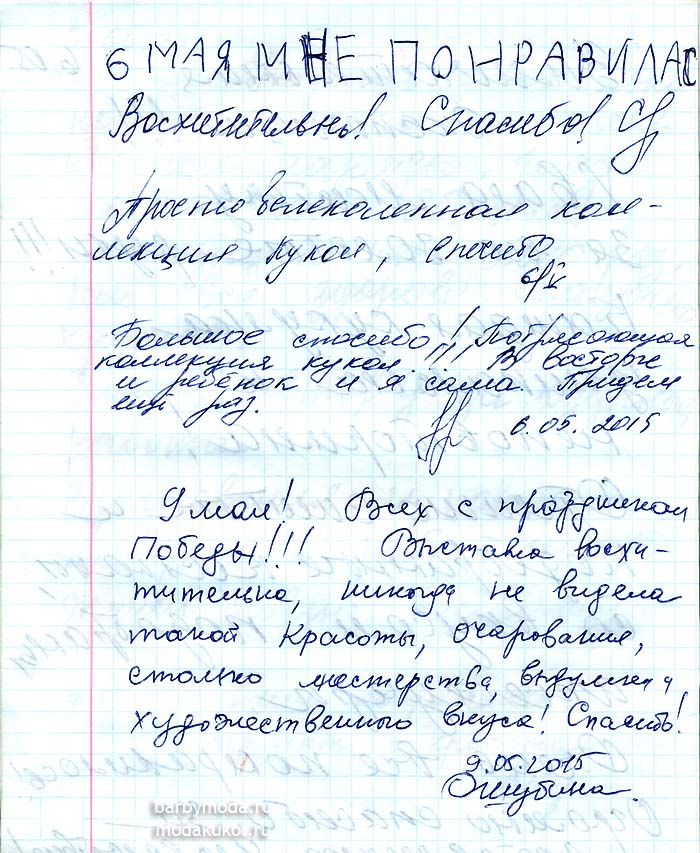 6 МАЯ МНЕ ПОНРАВИЛАС
Восхитительно! Спасибо!
Просто великолепная кол-
лекция кукол, спасибо
6/V
Большое спасибо! Потрясающая
коллекция кукол!!! В восторге
и ребёнок и я сама. Придем
ещё раз.
6.05.2015
9 мая! Всех с праздником
Победы!!! Выставка восхи-
тительна, никогда не видела
такой красоты, очарования,
столько мастерства, выдумки и
художественного вкуса! Спасибо!
9.05.2015
barbymoda.ru
modakukol.ru